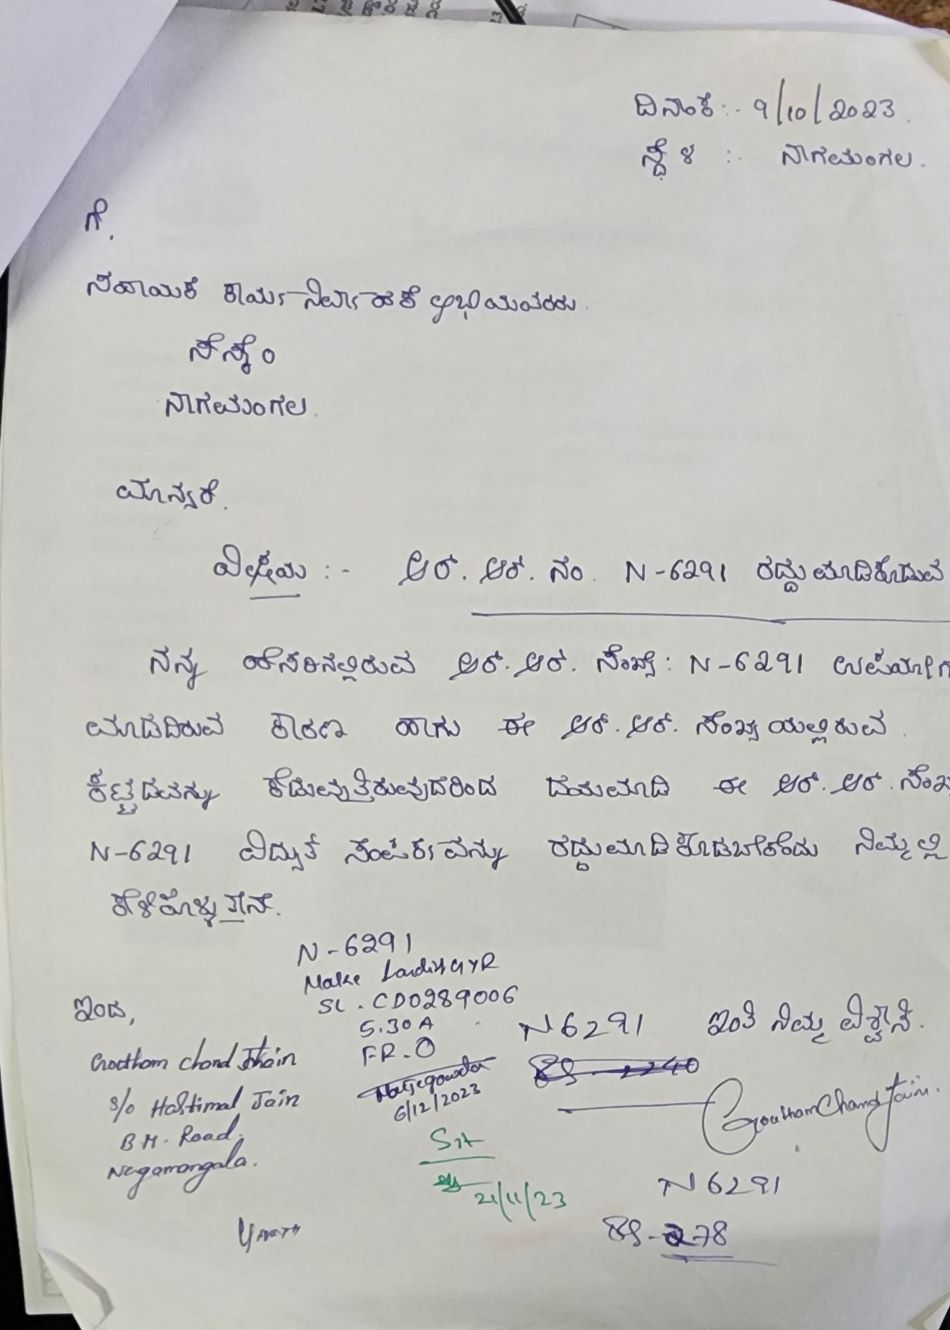 ದಿನಾಂಕ :- 9/10/2023.
ಸ್ಥಳ :- ನಾಗಮಂಗಲ.
ಗೆ,
ಸಹಾಯಕ ಕಾರ್ಯನಿರ್ವಾಹಕ
ಸೆಸ್ಕೊಂ
ನಾಗಮಂಗಲ.
ಮಾನ್ಯರೆ.
ವಿಷಯ :- ಆರ್. ಆರ್. ನಂ. N-6291 ರದ್ದು ಮಾಡಿಕೊಡುವ
ನನ್ನ ಹೆಸರಿನಲ್ಲಿರುವ ಆರ್. ಆರ್. ಸಂಖ್ಯೆ: N-6291
ಮಾಡದಿರುವ ಕಾರಣ ಹಾಗು ಈ ಆರ್. ಆರ್. ಸಂಖ್ಯೆಯಲ್ಲಿರುವ
ಕಟ್ಟಡವನ್ನು ಕೆಡುವುತ್ತಿರುವುದರಿಂದ ದಯಮಾಡಿ ಈ ಆರ್. ಆರ್.
N-6291 ವಿದ್ಯುತ್ ಸಂಪರ್ಕವನ್ನು ರದ್ದುಮಾಡಿಕೊಡಬೇಕೆಂದು ನಿಮ್ಮಲ್ಲಿ
ಕೇಳಿಕೊಳ್ಳುತ್ತೇನೆ.
N-6291
Make Landis GYR
SL. CD0289006
5.30A
FR.0
6/12/2023
21/11/23
ಇಂದ,
Goutham Chand Jhain
S/o Hastimal Jain
B.M. Road,
Nagamangala.
N6291
ಇಂತಿ ನಿಮ್ಮ ವಿಶ್ವಾಸಿ.
Goutham Chand Jain.
N6291
89-278